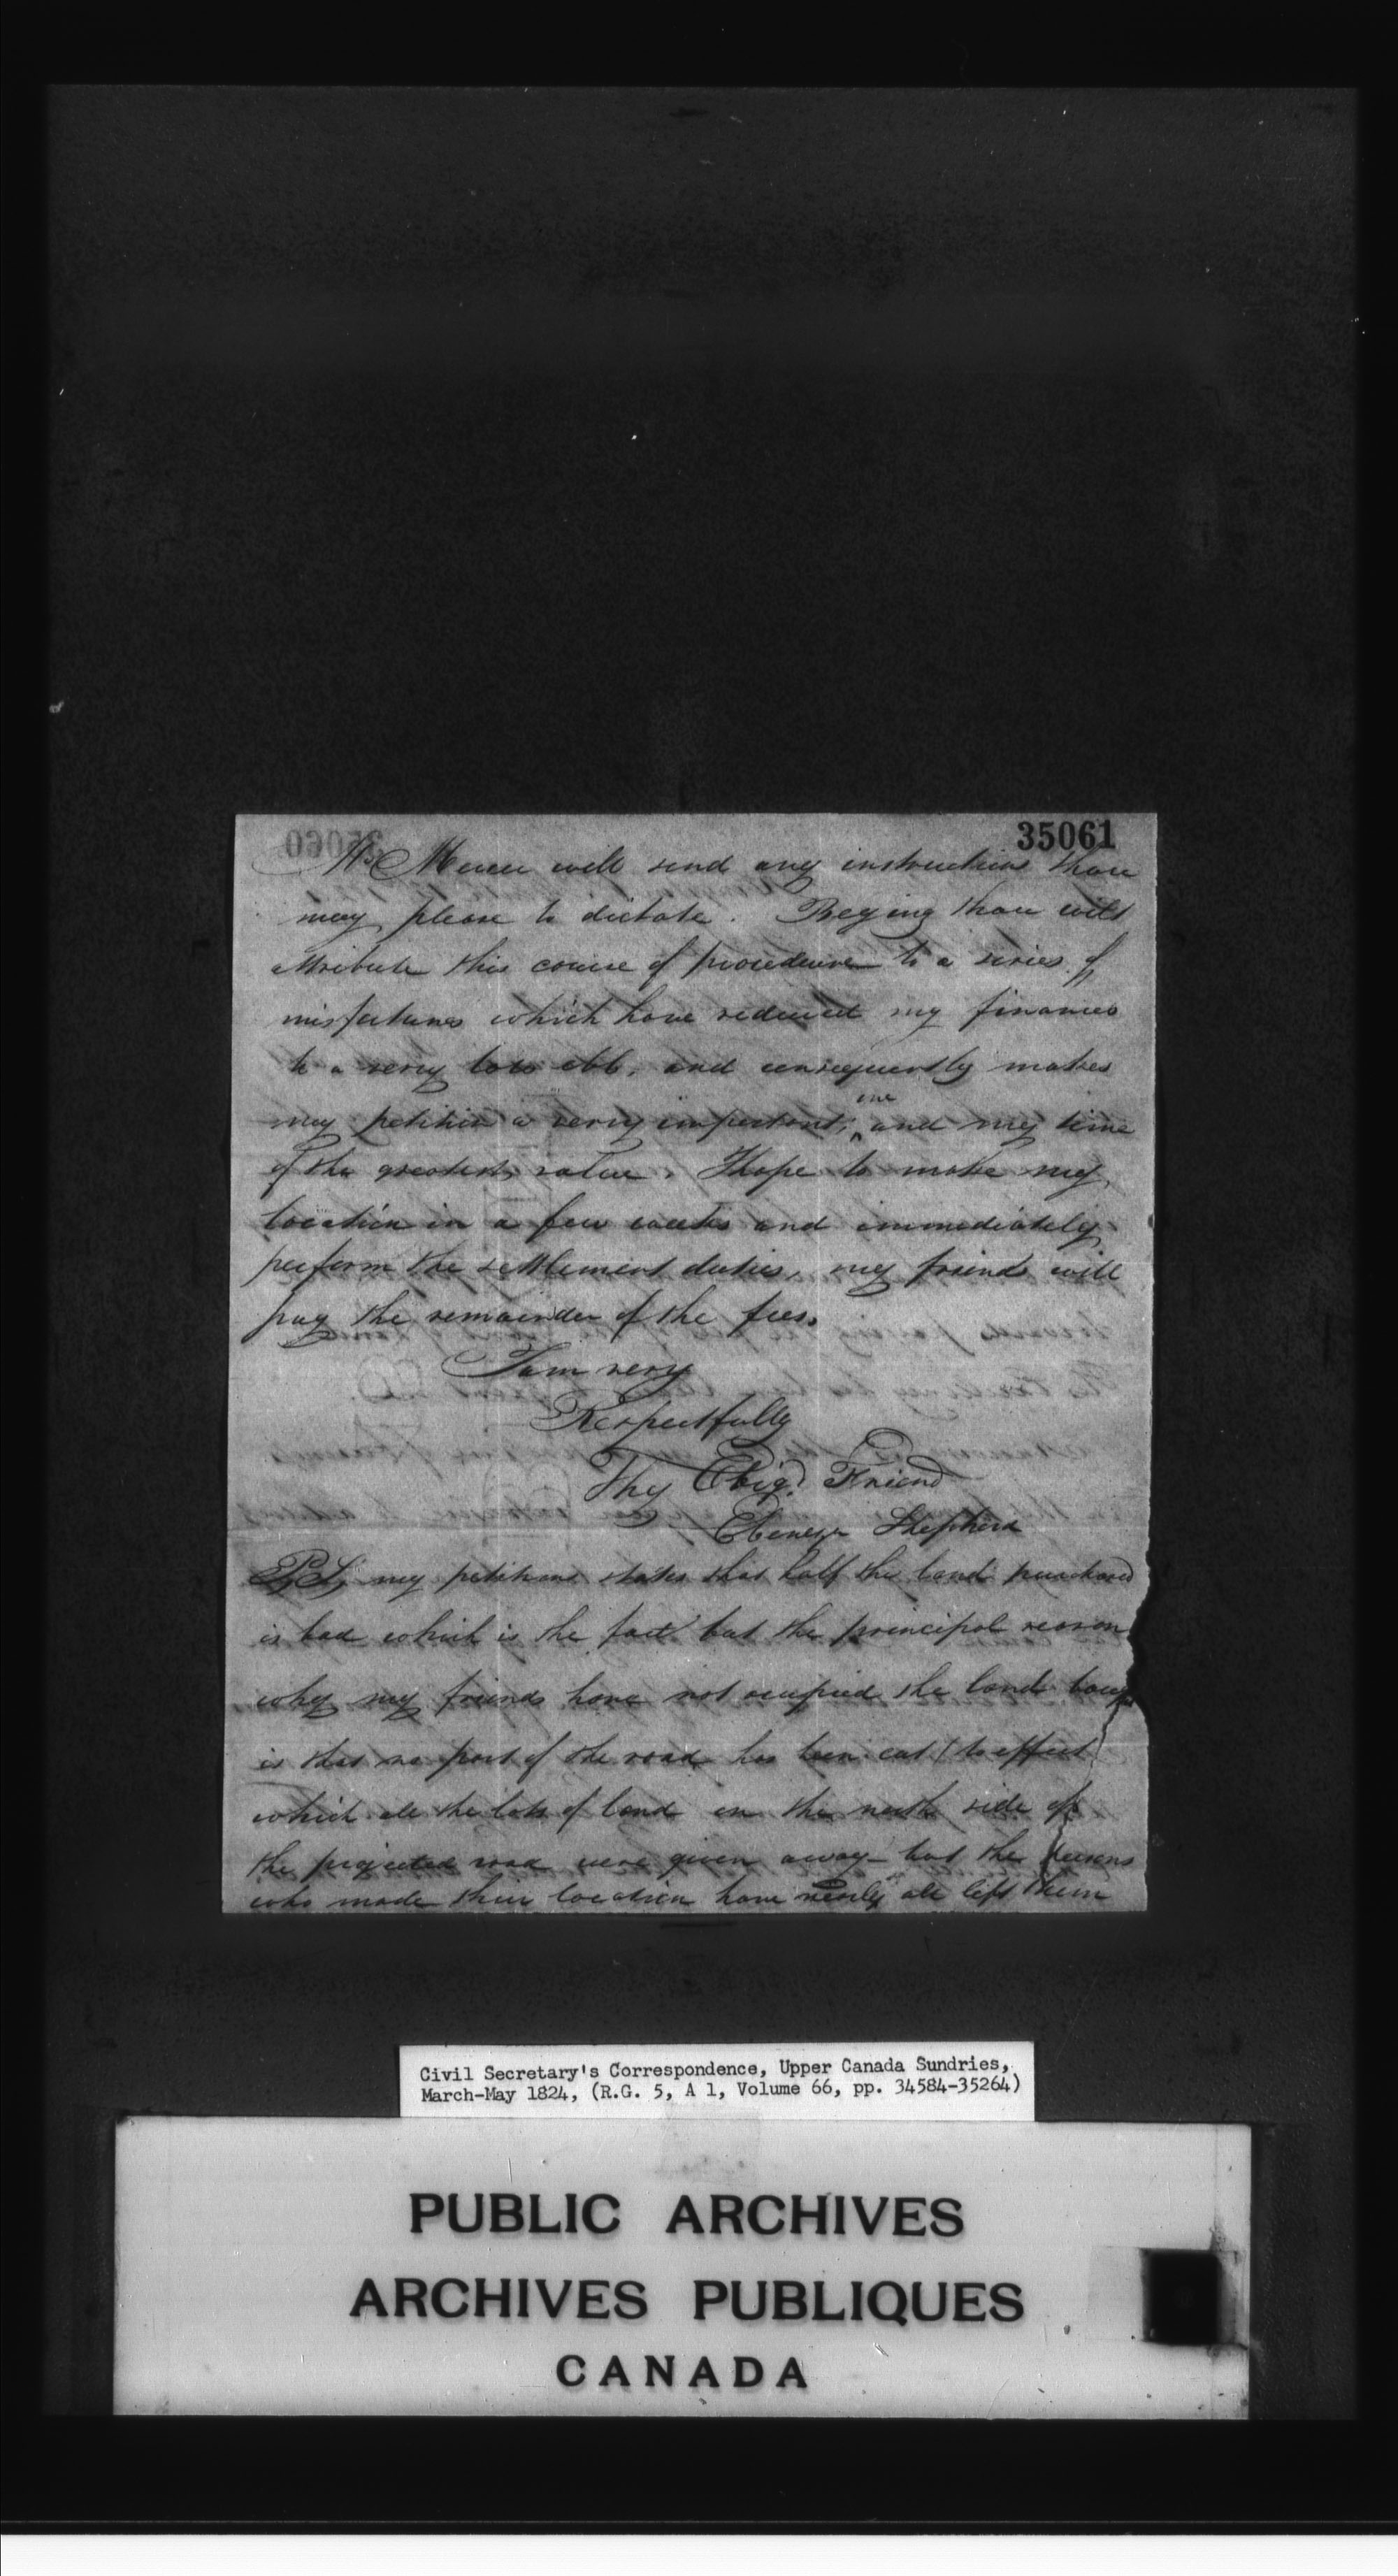 35061
Mercer will send any instructions thou
may please to dictate. Beging thou wilt
attribute this course of procedure to a series of
misfortunes which have reduced my finances
to a very low ebb, and consequently makes
my petition a very important, one and my time
of the greatest value. I hope to make my
location in a few weeks and immediately
perform the settlement duties, my friends will
pay the remainder of the fees.
I am very
Respectfully
Thy Oblgd. Friend
Ebenezer Shepherd
P.S. my petitions states that half the land purchased
is bad which is the fact but the principal reason
why my friends have not ocupied the land
is that no part of the road has been cut (to effect
which all the lots of land on the north side of
the projected road were given away - but the persons
who made their location have nearly all left them
Civil Secretary's Correspondence, Upper Canada Sundries,
March-May 1824, (R.G. 5, A 1, Volume 66, pp. 34584-35264)
PUBLIC ARCHIVES
ARCHIVES PUBLIQUES
CANADA